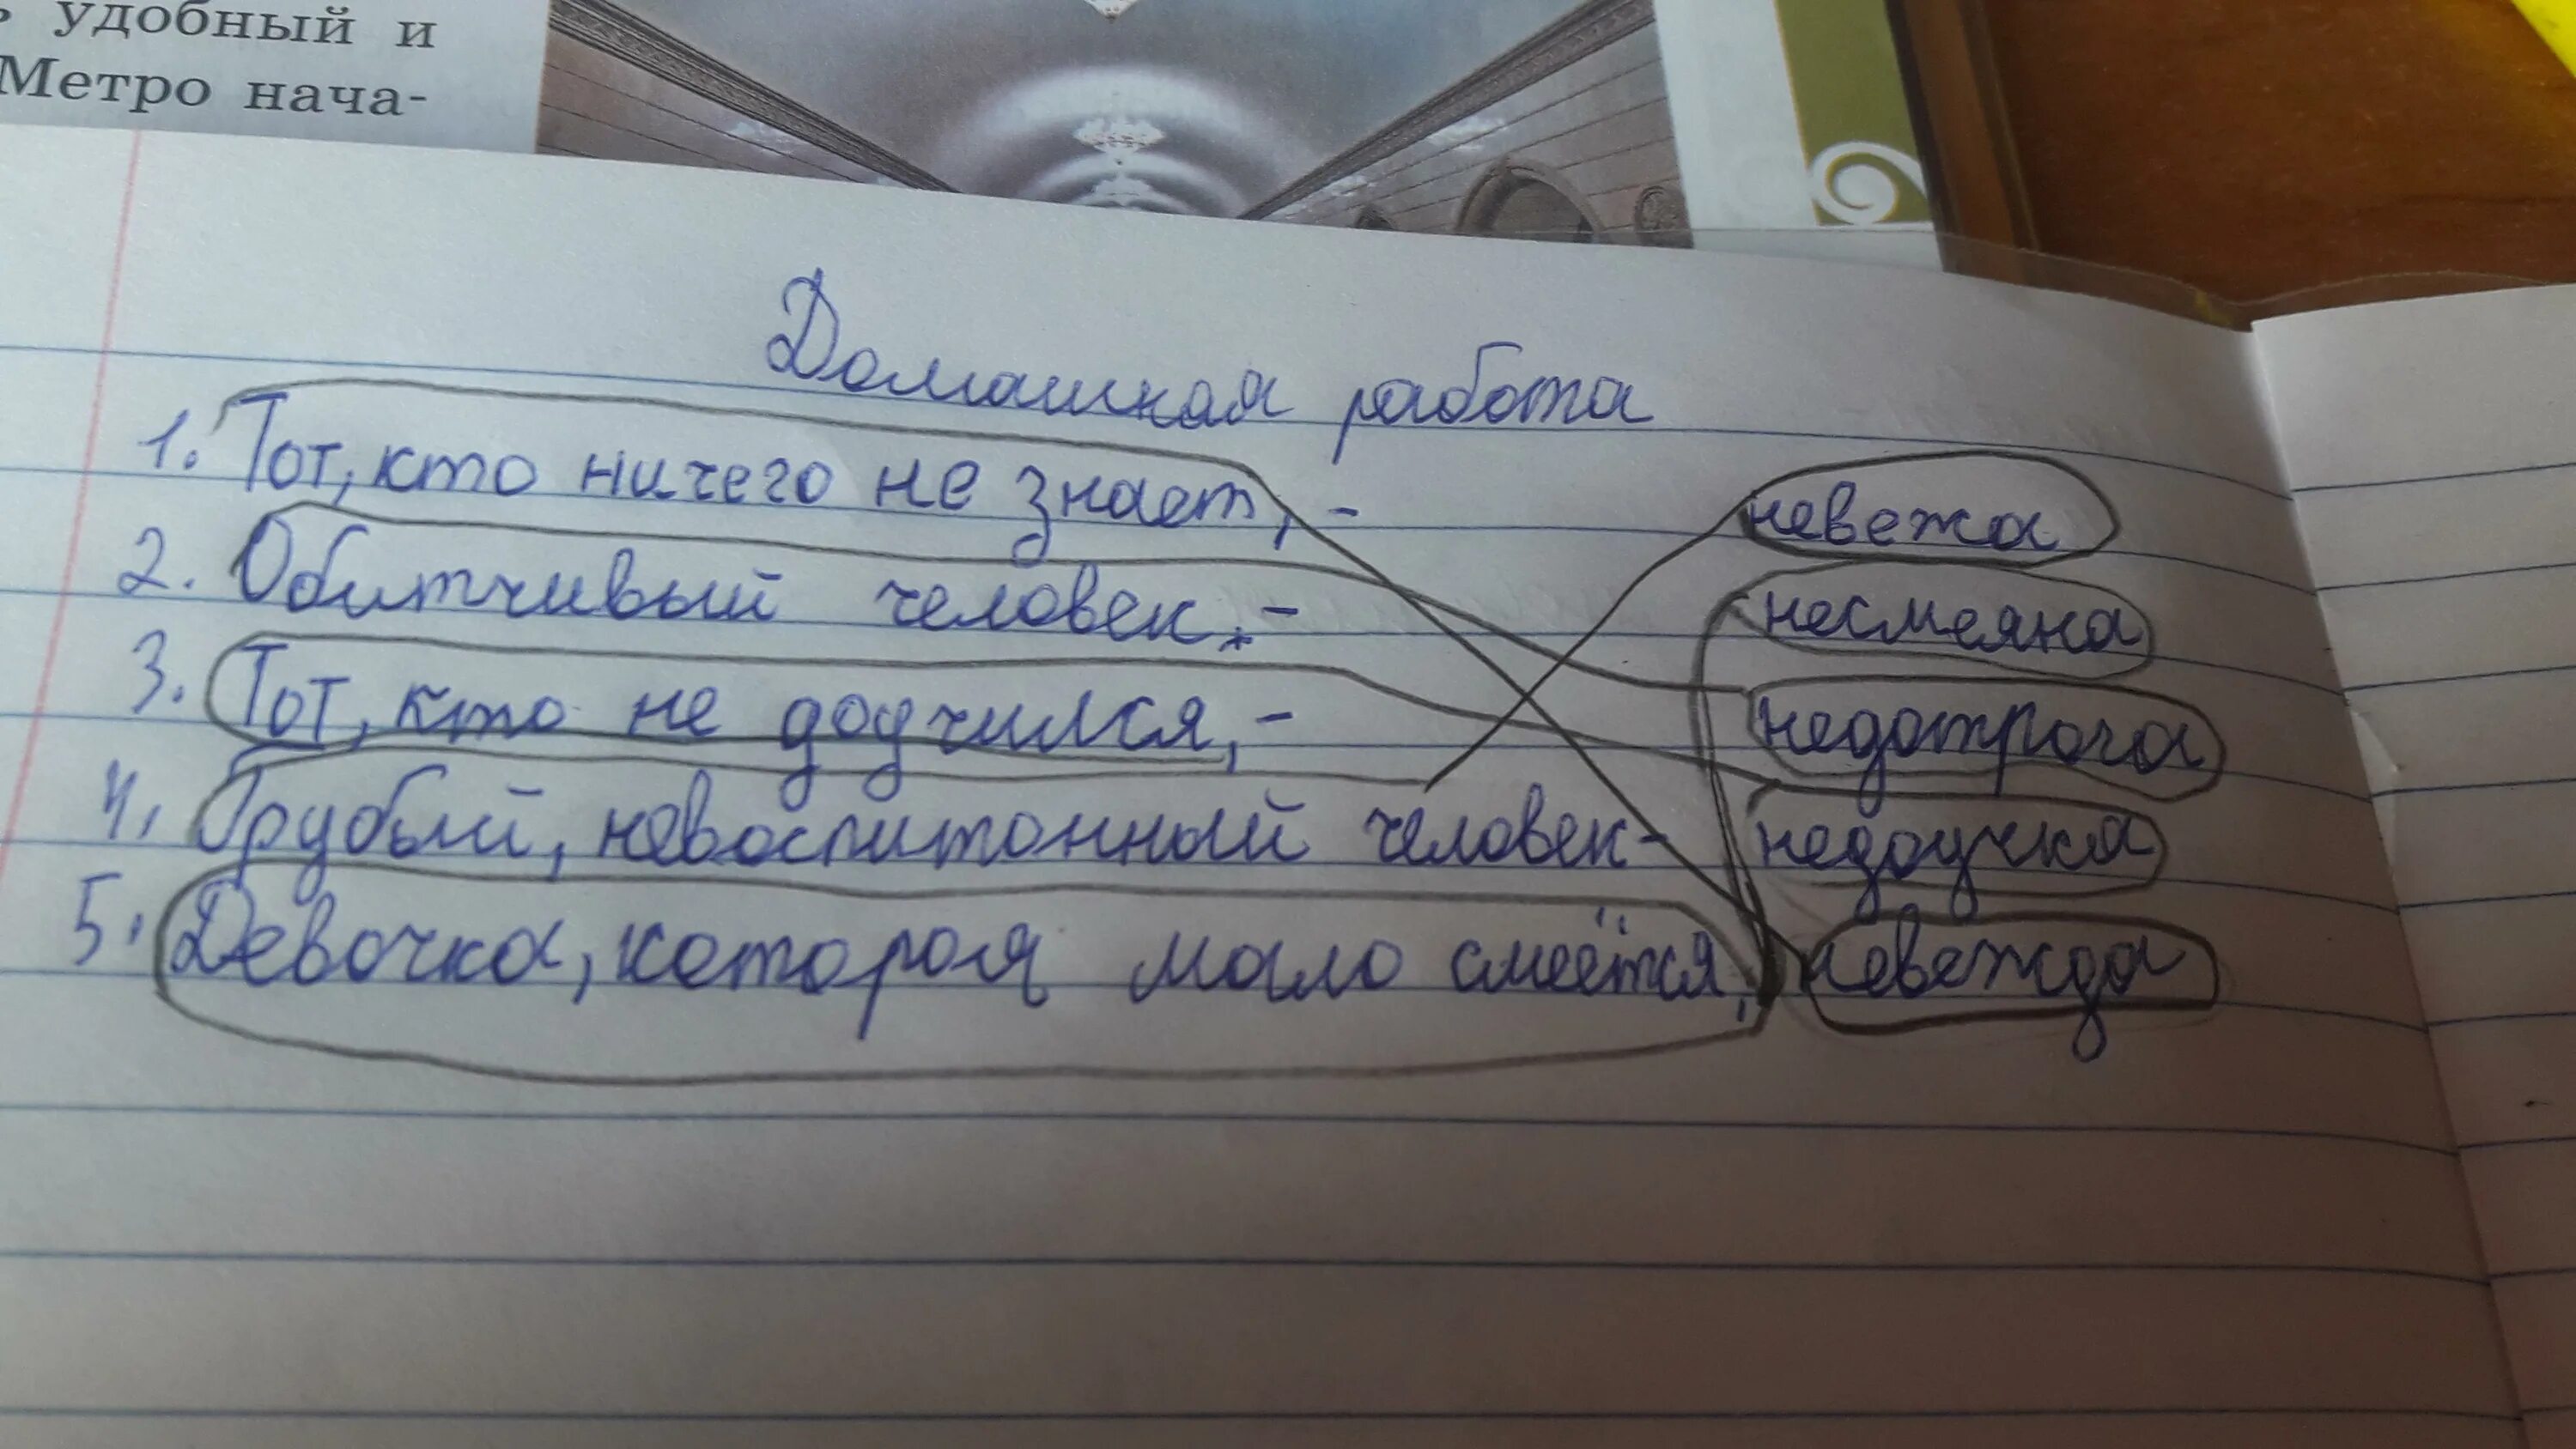 удобный и
Метро нача-
Домашняя работа
1. Тот, кто ничего не знает, - невежа
2. Обитчивый человек, - несмеяна
3. Тот, кто не доучился, - недотрога
4. Грубый, невоспитонный человек- недоучка
5. Девочка, которая мало смеётся, невежда